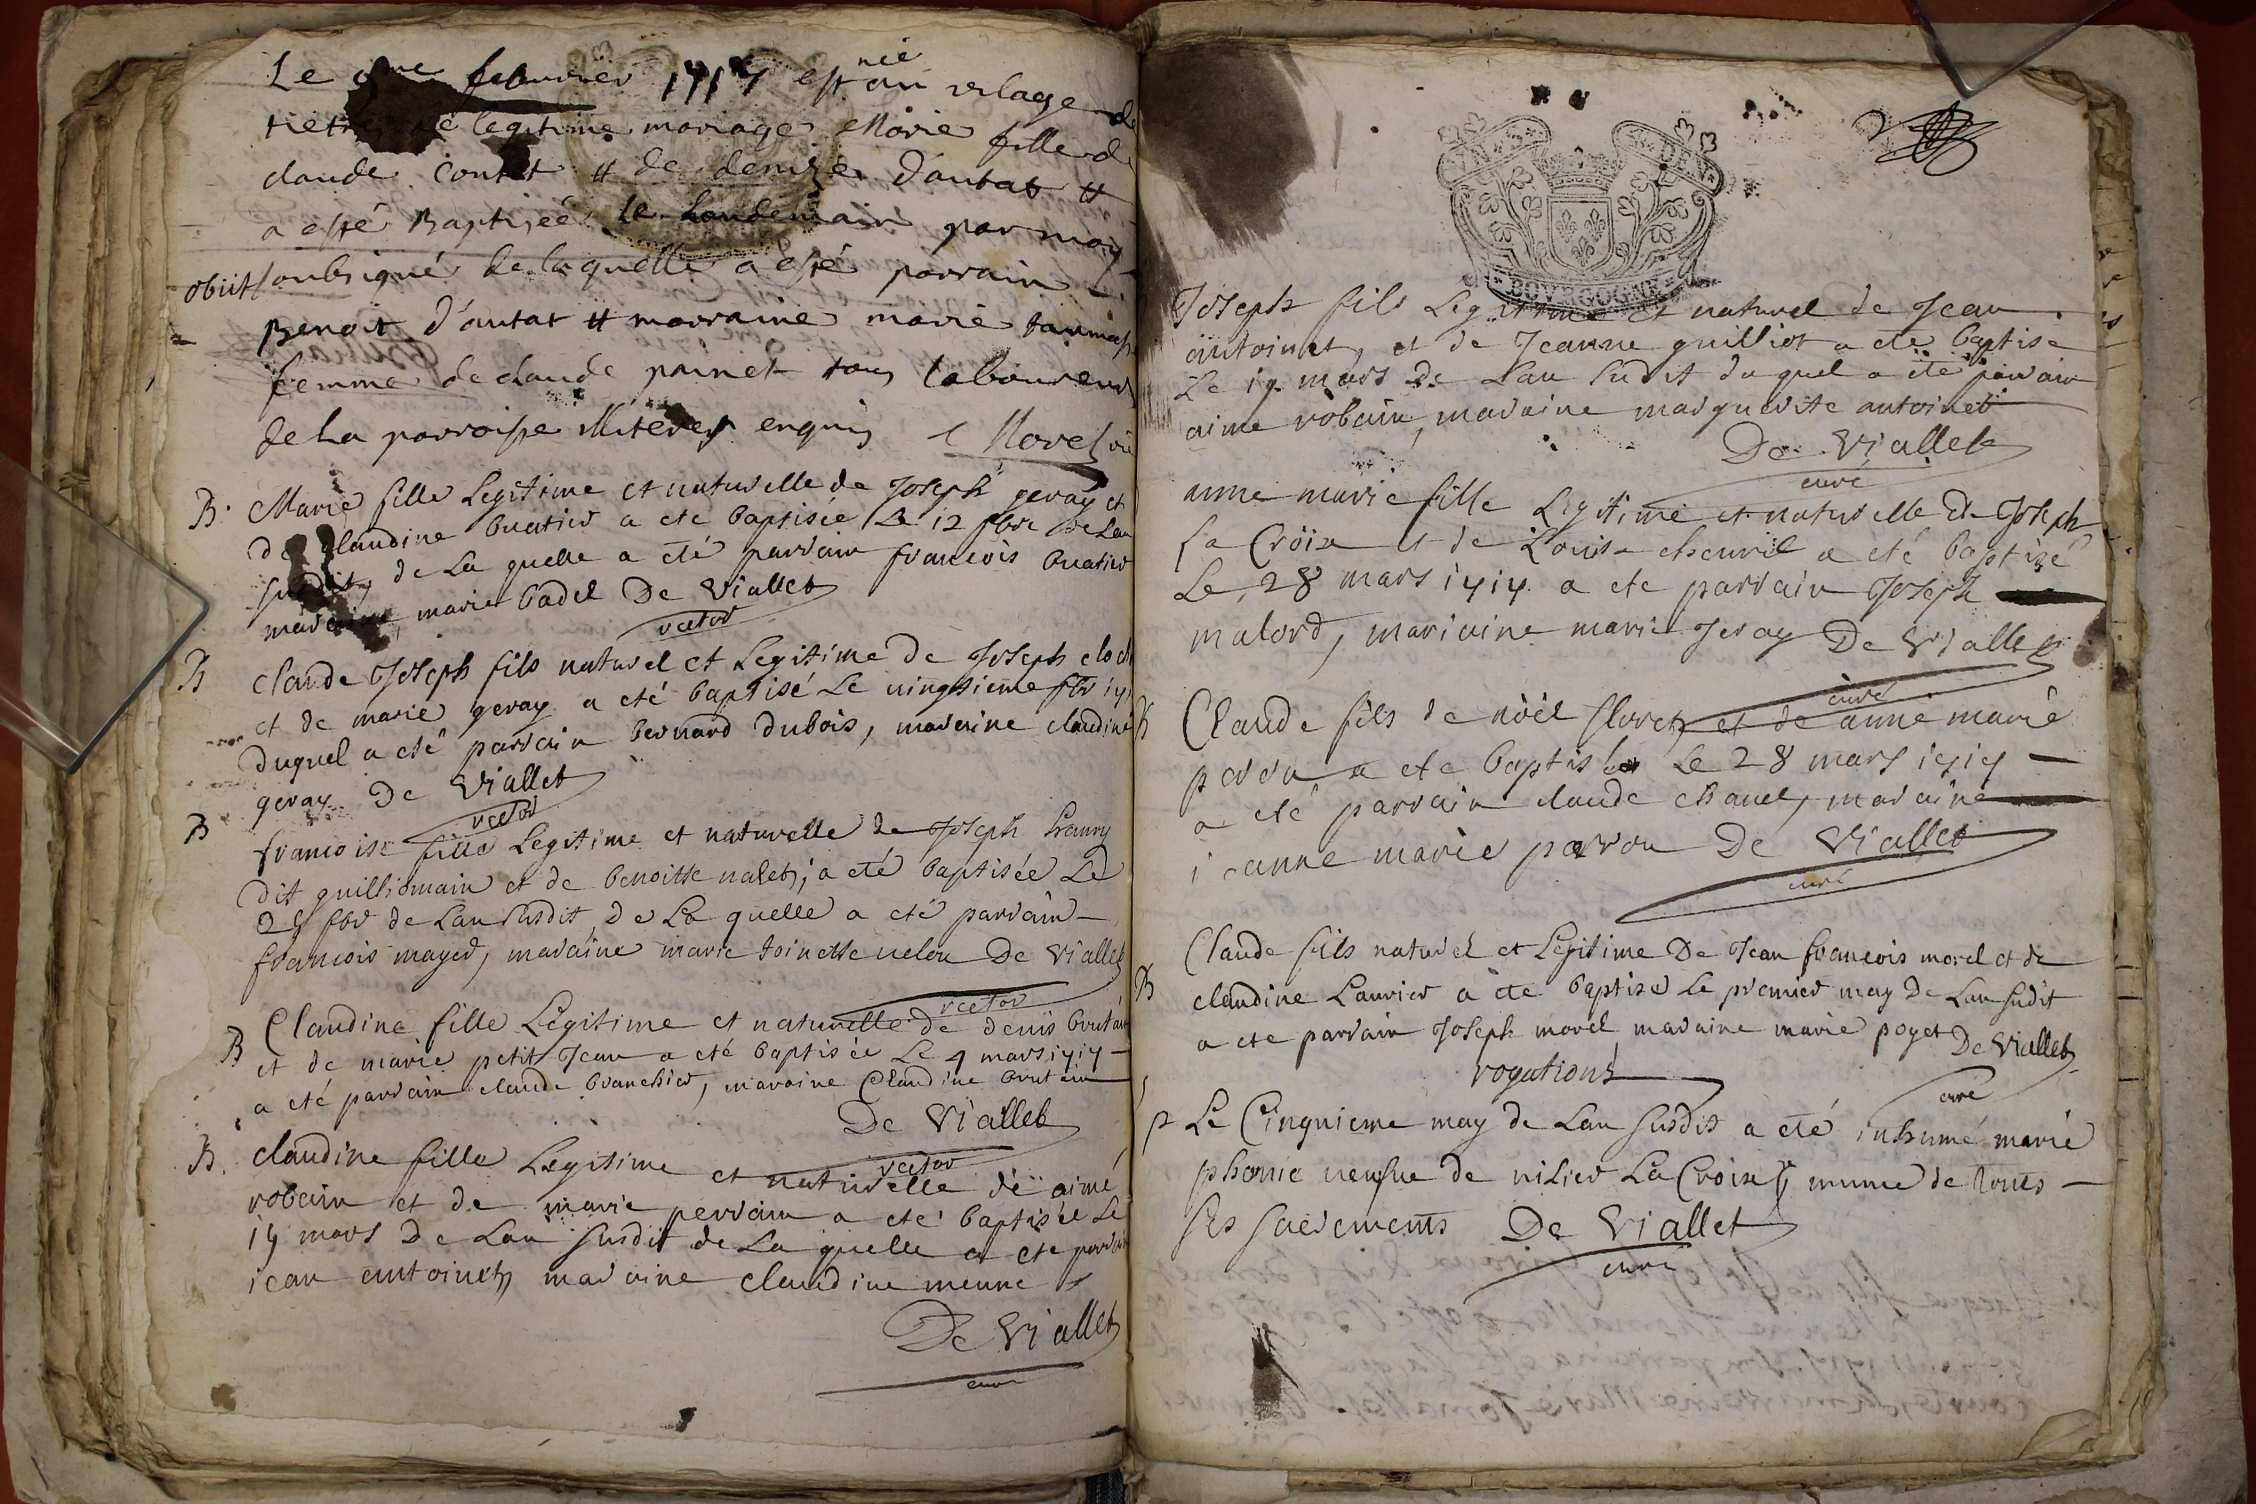 Le 9me febvrier 1717 est née au vilage de
de legitime mariage Marie fille de
claude contet & de denize d'autat &
a esté Baptizée le Landemain par moy
obiit soubsigné de laquelle a esté parrain
Benoit d'autat & marraine marie
femme de claude prinet tous laboureurs
de la parroisse illiterez enquis Morel
B. Marie fille Legitime et naturelle de Joseph geray et
de claudine buatier a eté baptisée Le 12 fbre de Lan
susdit, de La quelle a eté parrain francois buatier
maraine, marie badel De Viallet
rector
B claude Joseph fils naturel et Legitime de Joseph
et de marie geray a eté baptisé Le vingtieme fbr
duquel a eté parrain bernard Dubois, maraine claudine
geray De Viallet
rector
B francoise fille Legitime et naturelle de Joseph
dit guilliomain et de benoitte nalet, a eté baptisée Le
fbr de Lan susdit, De La quelle a eté parrain
francois mayer, maraine marie toinette velon De Viallet
rector
B Claudine fille Legitime et naturelle de denis brutain
et de marie petit Jean a eté baptisée Le 4 mars 1717
a eté parrain claude branchier, maraine Claudine brutain
De Viallet
rector
B. claudine fille Legitime et naturelle de aimé
robain et de marie perrain a eté baptisée Le
17 mars De Lan susdit de La quelle a ete parrain
jean antoinet, maraine claudine menne
De Viallet
curé
BOURGOGNE
Joseph fils Legitime et naturel de Jean
antoinet, et de Jeanne guilliot a eté baptise
Le 19 mars de Lan sudit duquel a eté parrain
aime robain, maraine marguerite antoinet
De Viallet
curé
anne marie fille Legitime et naturelle de Joseph
La Croix et de Louise chevril a eté baptizé
Le 28 mars 1717 a ete parrain Joseph
malord, mariaine marie Jeray De Viallet
curé
B Claude fils de nöel floret, et de anne marie
perron a ete baptis Le 28 mars 1717
a eté parrain claude chanel, maraine
jeanne marie parrou De Viallet
curé
B Claude fils naturel et Legitime De Jean francois morel et de
claudine Lanrier a ete baptise Le premier may De Lan sudit
a ete parrain Joseph morel maraine marie poget De Viallet
curé
rogations
p Le Cinquieme may de Lan susdit a eté inhumé marie
phonie veufue de nilier La Croix, munie de tous
ses sacrements De Viallet
curé